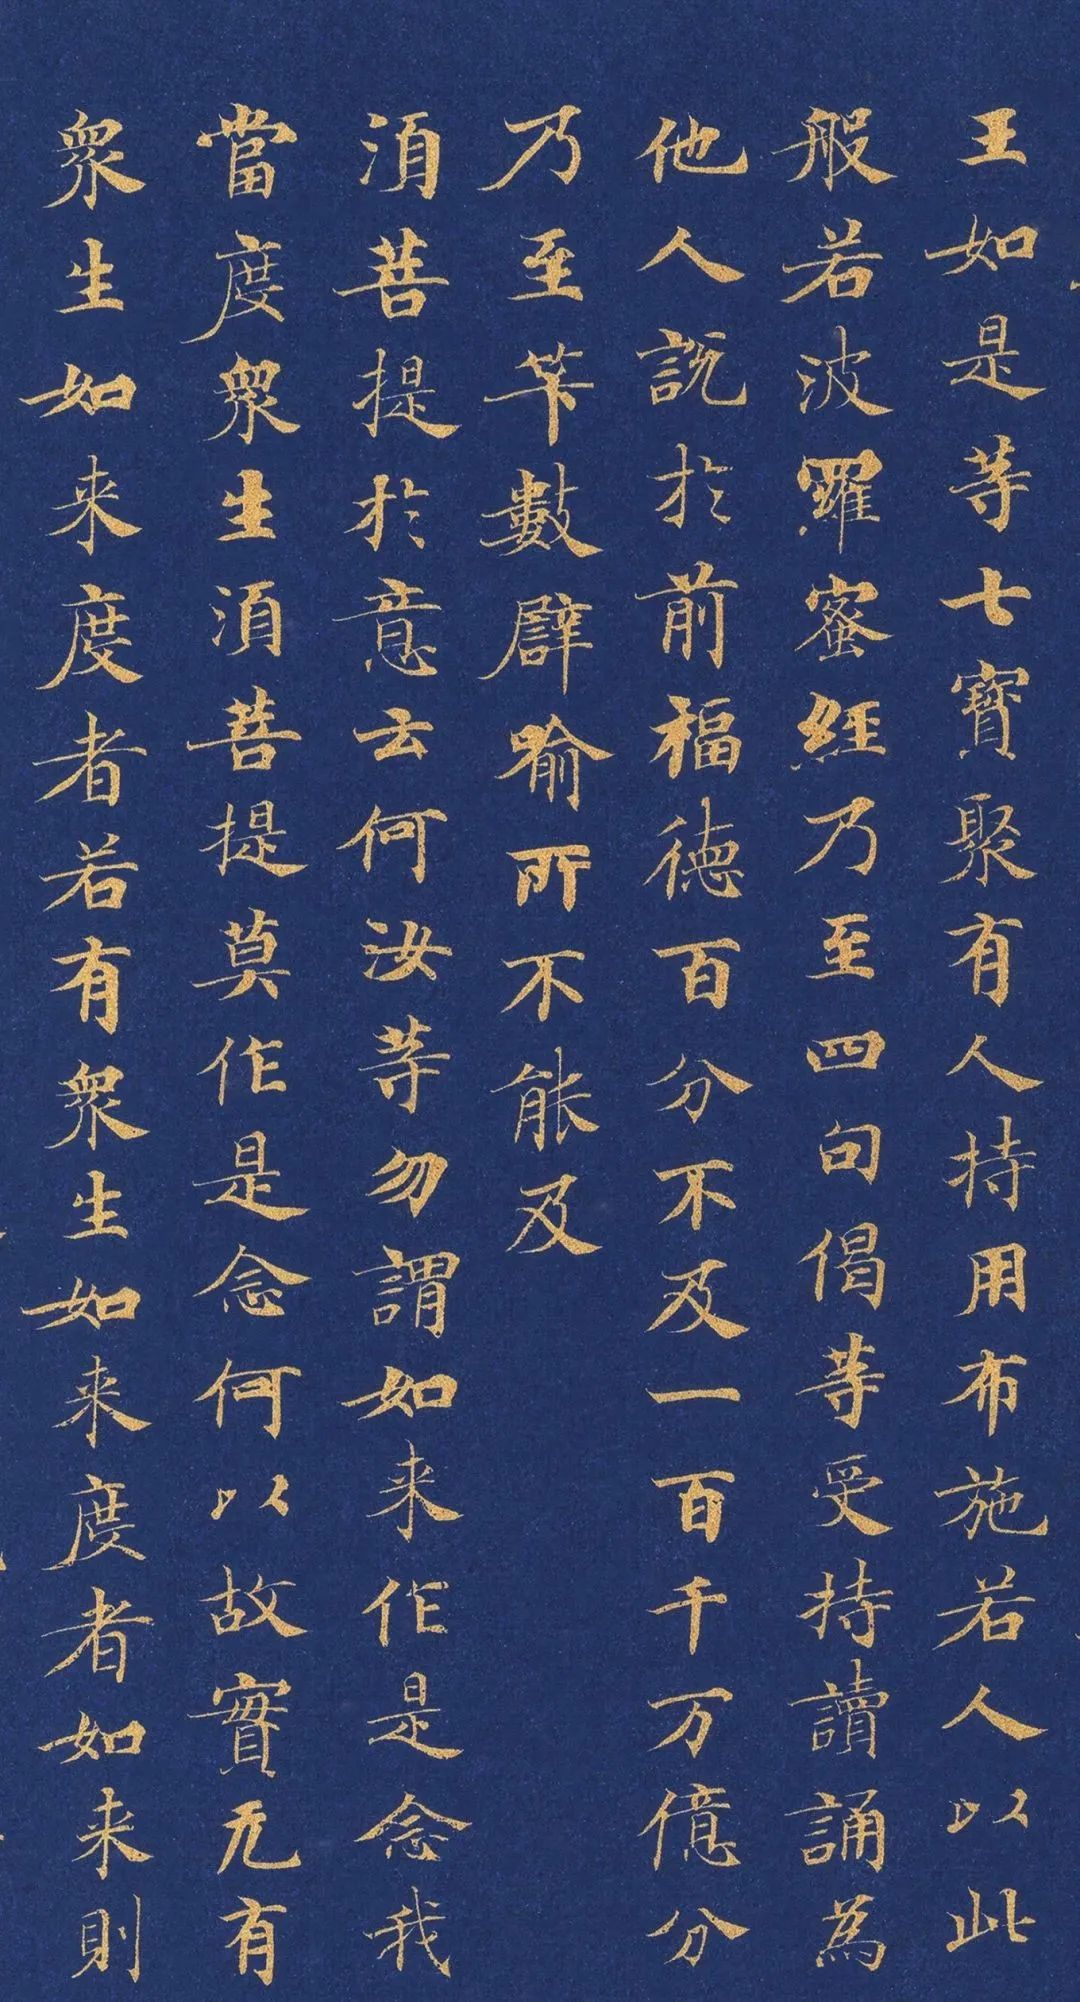 王如是等七寶聚有人持用布施若人以此
般若波羅蜜經乃至四句偈等受持讀誦為
他人説於前福德百分不及一百千万億分
乃至筭數譬喻所不能及
須菩提於意云何汝等勿謂如来作是念我
當度衆生須菩提莫作是念何以故實无有
衆生如来度者若有衆生如来度者如来則